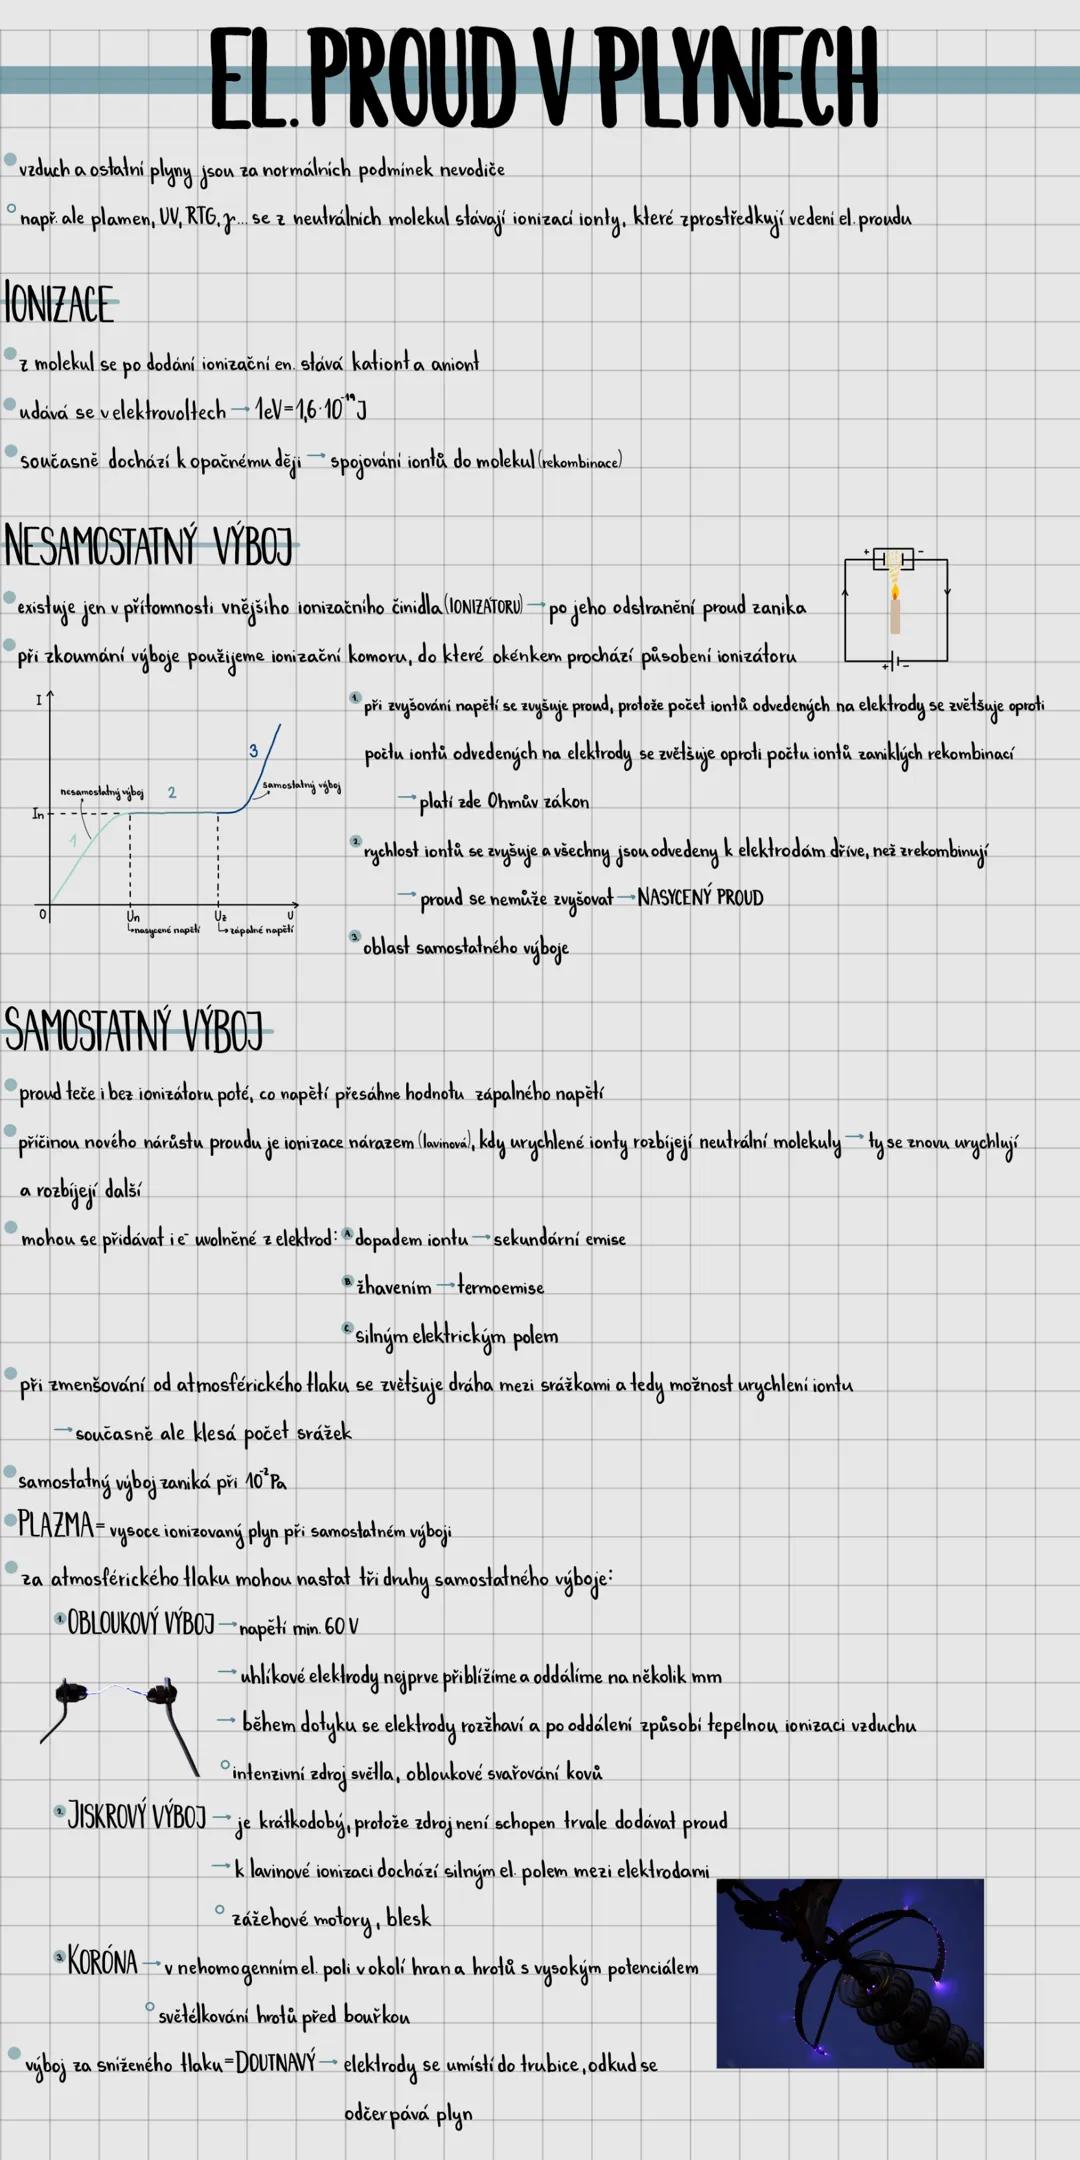 EL. PROUD V PLYNECH
vzduch a ostatní plyny jsou za normálních podmínek nevodiče
např. ale plamen, UV, RTG, γ... se z neutrálních molekul stávají ionizací ionty, které zprostředkují vedení el. proudu
IONIZACE
z molekul se po dodání ionizační en. stává kationt a aniont
udává se v elektrovoltech → 1eV=1,6·10⁻¹⁹J
současně dochází k opačnému ději → spojování iontů do molekul (rekombinace)
NESAMOSTATNÝ VÝBOJ
existuje jen v přítomnosti vnějšího ionizačního činidla (IONIZÁTORU) → po jeho odstranění proud zaniká
při zkoumání výboje použijeme ionizační komoru, do které okénkem prochází působení ionizátoru
+ −
+ −
I
3
nesamostatný výboj
2
samostatný výboj
In
1
0
Un
Uz
U
↳ nasycené napětí
↳ zápalné napětí
1. při zvyšování napětí se zvyšuje proud, protože počet iontů odvedených na elektrody se zvětšuje oproti
počtu iontů odvedených na elektrody se zvětšuje oproti počtu iontů zaniklých rekombinací
→ platí zde Ohmův zákon
2. rychlost iontů se zvyšuje a všechny jsou odvedeny k elektrodám dříve, než zrekombinují
→ proud se nemůže zvyšovat → NASYCENÝ PROUD
3. oblast samostatného výboje
SAMOSTATNÝ VÝBOJ
proud teče i bez ionizátoru poté, co napětí přesáhne hodnotu zápalného napětí
příčinou nového nárůstu proudu je ionizace nárazem (lavinová), kdy urychlené ionty rozbíjejí neutrální molekuly → ty se znovu urychlují
a rozbíjejí další
mohou se přidávat i e⁻ uvolněné z elektrod: A. dopadem iontu → sekundární emise
B. žhavením → termoemise
C. silným elektrickým polem
při zmenšování od atmosférického tlaku se zvětšuje dráha mezi srážkami a tedy možnost urychlení iontu
→ současně ale klesá počet srážek
samostatný výboj zaniká při 10⁻²Pa
PLAZMA = vysoce ionizovaný plyn při samostatném výboji
za atmosférického tlaku mohou nastat tři druhy samostatného výboje:
1. OBLOUKOVÝ VÝBOJ → napětí min. 60 V
→ uhlíkové elektrody nejprve přiblížíme a oddálíme na několik mm
→ během dotyku se elektrody rozžhaví a po oddálení způsobí tepelnou ionizaci vzduchu
intenzivní zdroj světla, obloukové svařování kovů
2. JISKROVÝ VÝBOJ → je krátkodobý, protože zdroj není schopen trvale dodávat proud
→ k lavinové ionizaci dochází silným el. polem mezi elektrodami
zážehové motory, blesk
3. KORÓNA → v nehomogenním el. poli v okolí hran a hrotů s vysokým potenciálem
světélkování hrotů před bouřkou
výboj za sníženého tlaku = DOUTNAVÝ → elektrody se umístí do trubice, odkud se
odčerpává plyn